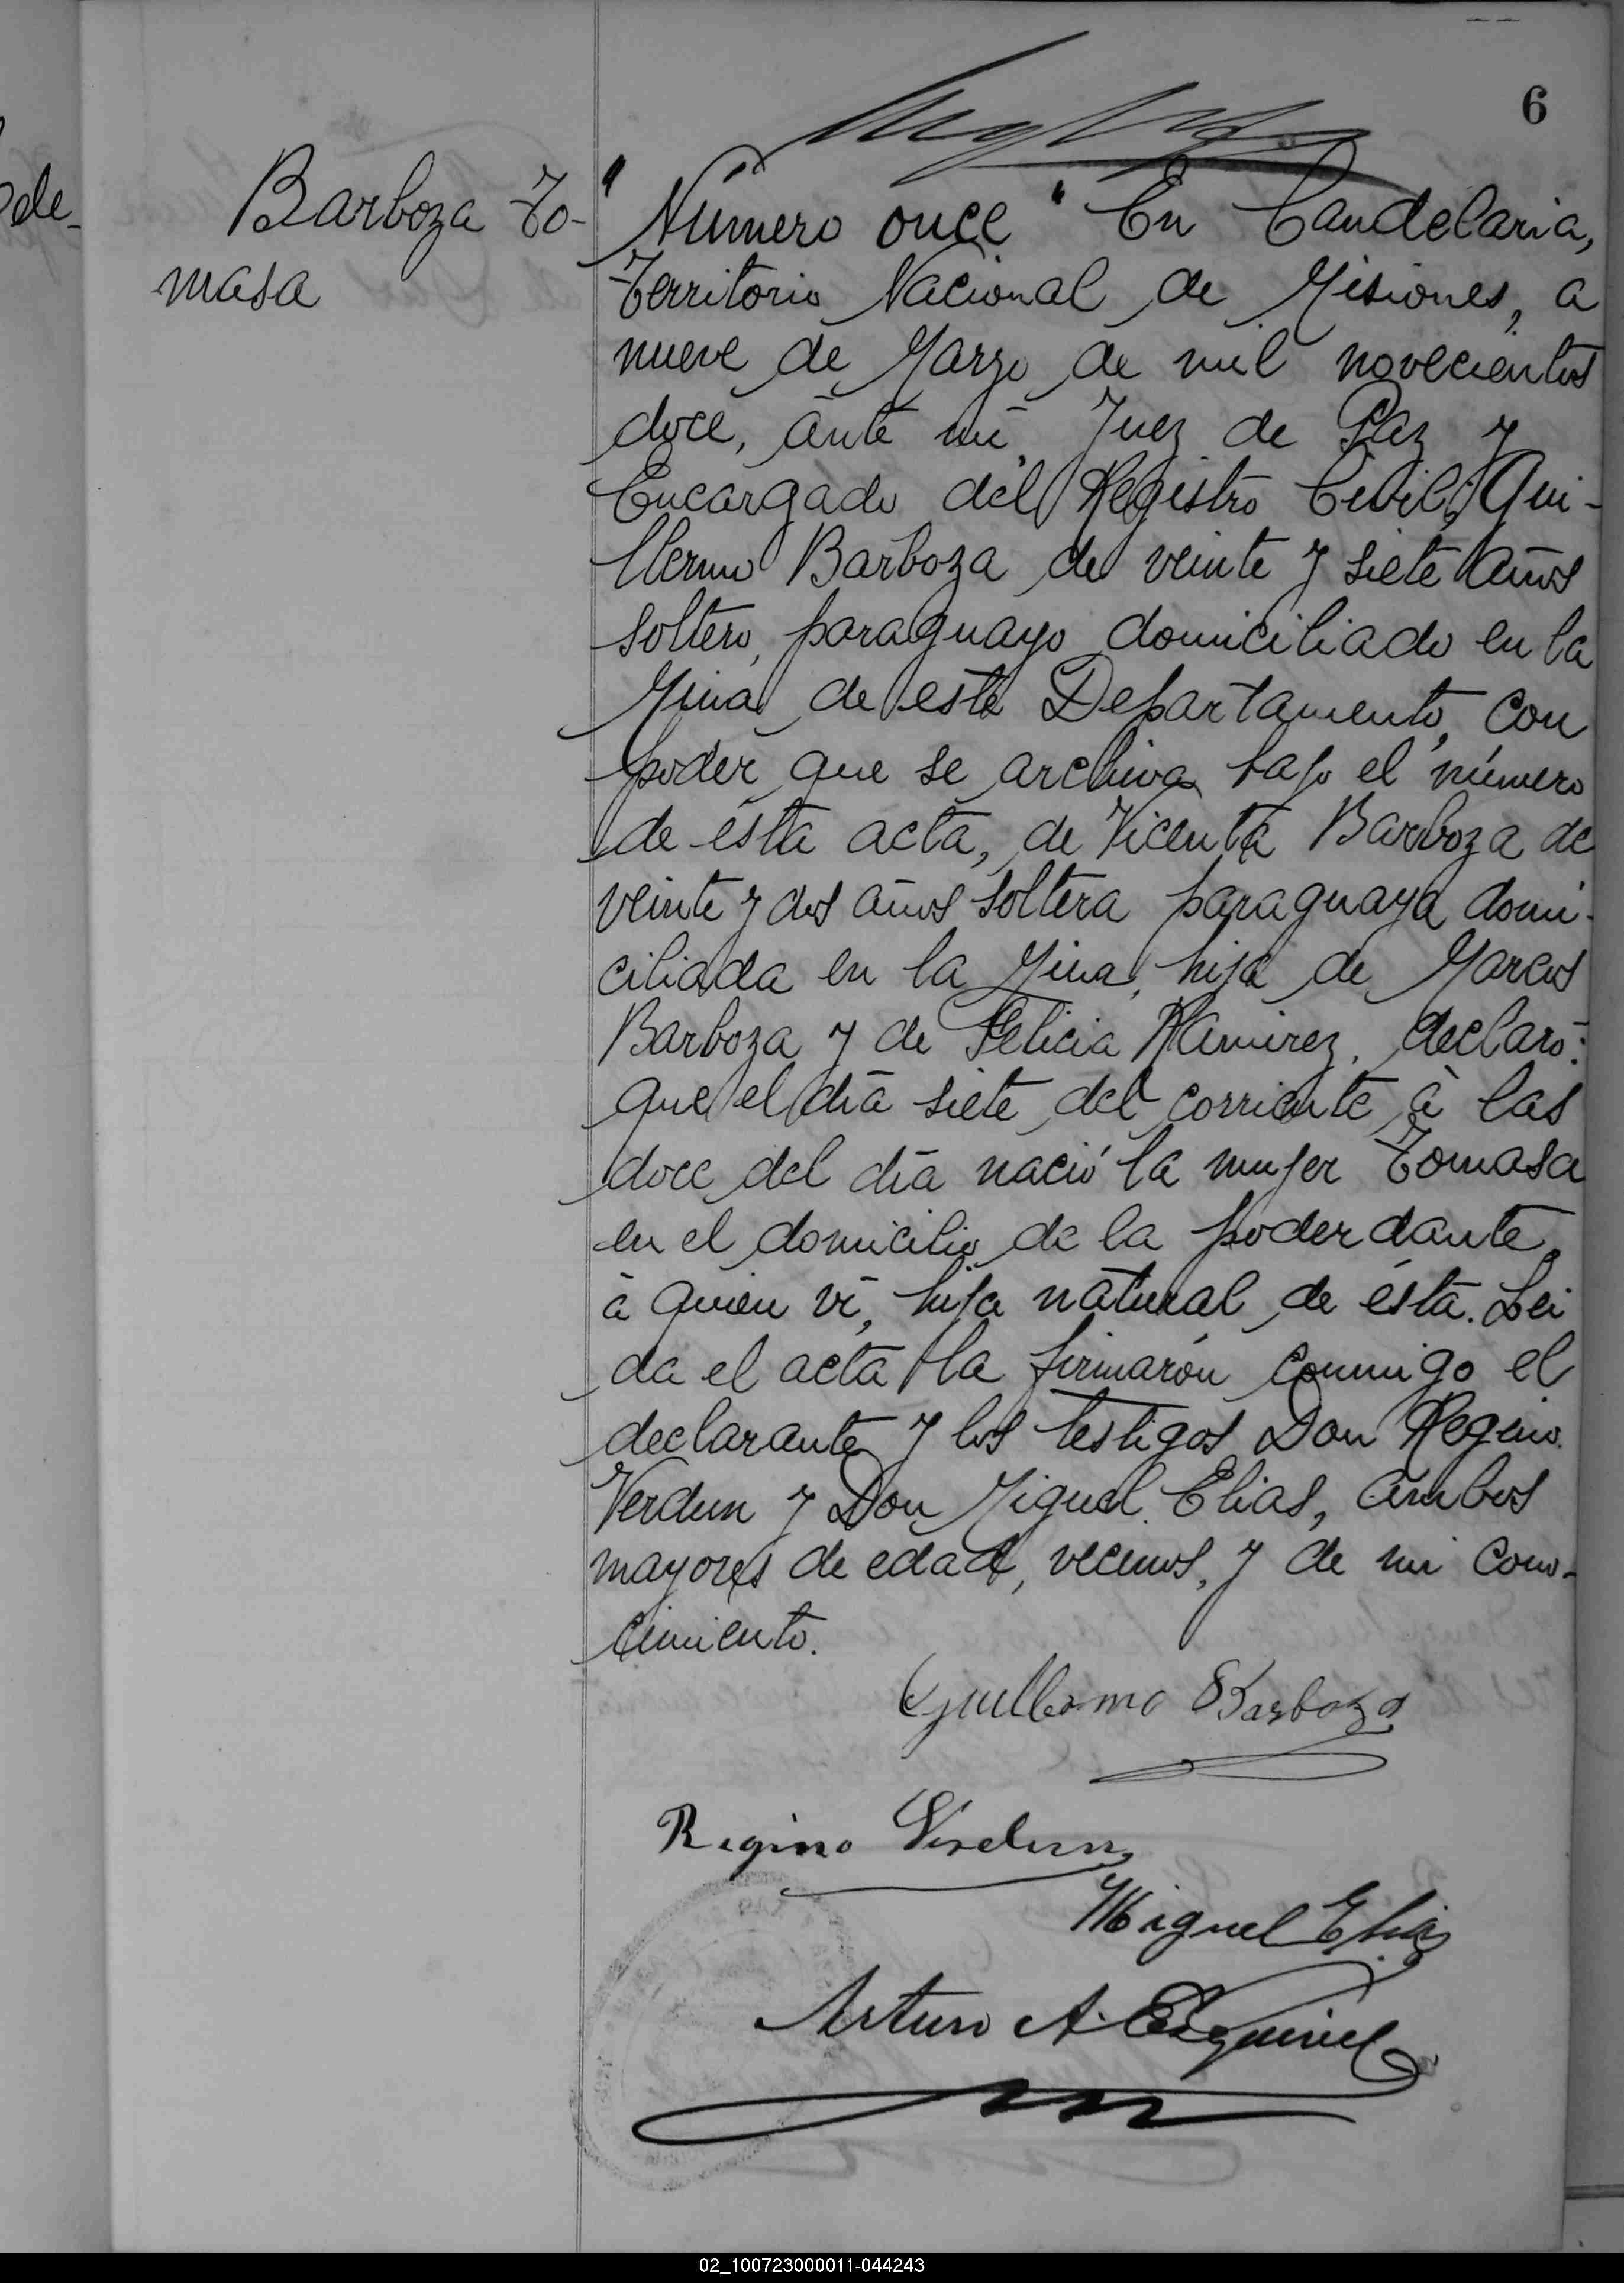 6
de-
Barboza To-
masa
"Número once" En Candelaria,
Territorio Nacional de Misiones, a
nueve de Marzo de mil novecientos
doce, ánte mí, Juez de Paz y
Encargado del Registro Civil, Gui-
llermo Barboza de veinte y siete años
soltero, paraguayo domiciliado en la
Mina de este Departamento, con
poder que se archiva bajo el número
de ésta acta, de Vicenta Barboza de
veinte y dos años soltera paraguaya domi-
ciliada en la Mina, hija de Marcos
Barboza y de Felicia Ramirez, declaró:
que el día siete del corriente, à las
doce del día nació la mujer Tomasa
en el domicilio de la poderdante,
à quien ví, hija natural de ésta. Lei
da el acta la firmarón conmigo el
declarante y los testigos Don Regino
Verdun y Don Miguel Elias, ambos
mayores de edad, vecinos, y de mi cono-
cimiento.
Guillermo Barboza
Regino Verdun
Miguel Elias
Arturo A. Esquivel
02_100723000011-044243